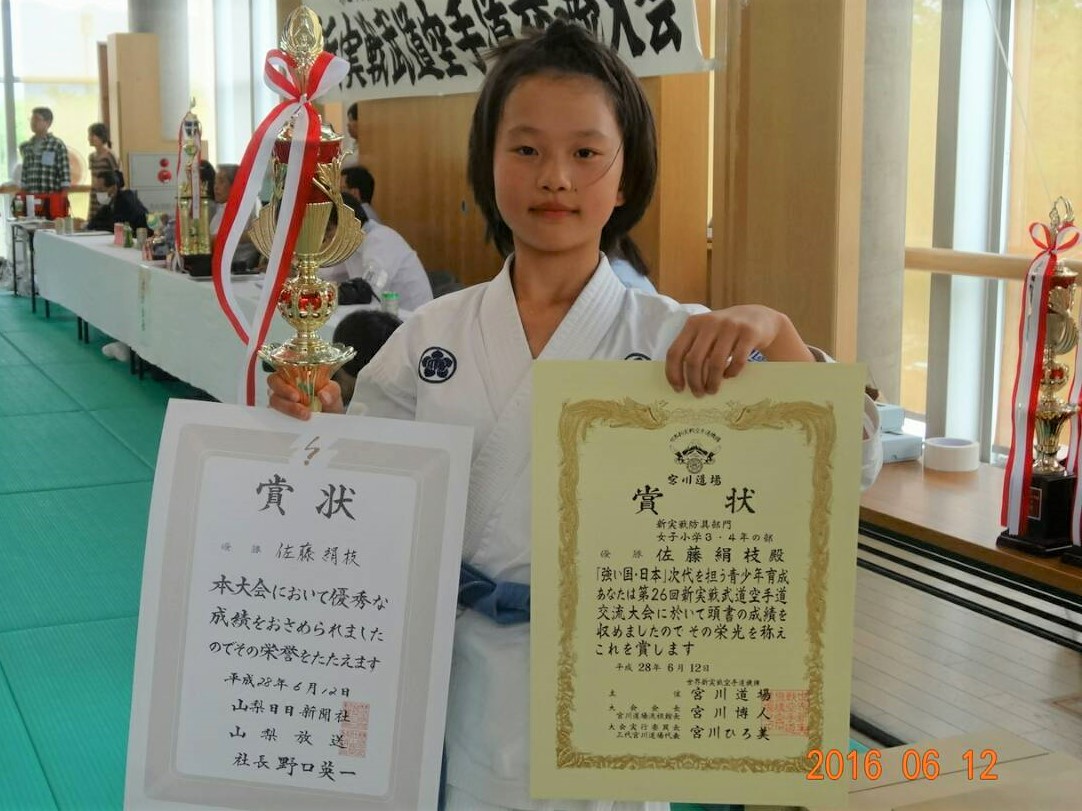 新実戦武道空手道交流大会
賞状
優勝 佐藤絹枝
本大会において優秀な
成績をおさめられました
のでその栄誉をたたえます
平成28年6月12日
山梨日日新聞社
山梨放送
社長 野口英一
宮川道場
賞状
新実戦防具部門
女子小学3・4年の部
優勝 佐藤絹枝殿
「強い国・日本」次代を担う青少年育成
あなたは第26回新実戦武道空手道
交流大会に於いて頭書の成績を
収めましたのでその栄光を称え
これを賞します
平成28年6月12日
世界新実戦空手道機構
主催 宮川道場
大会会長
宮川博人
大会実行委員長
三代宮川道場代表
宮川ひろ美
2016 06 12